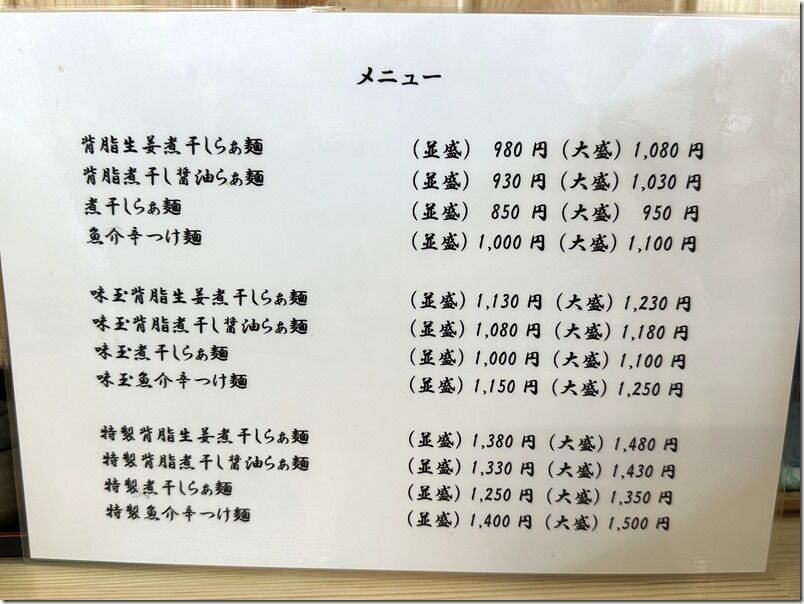 メニュー
背脂生姜煮干しらぁ麺 (並盛) 980 円 (大盛) 1,080 円
背脂煮干し醤油らぁ麺 (並盛) 930 円 (大盛) 1,030 円
煮干しらぁ麺 (並盛) 850 円 (大盛) 950 円
魚介辛つけ麺 (並盛) 1,000 円 (大盛) 1,100 円
味玉背脂生姜煮干しらぁ麺 (並盛) 1,130 円 (大盛) 1,230 円
味玉背脂煮干し醤油らぁ麺 (並盛) 1,080 円 (大盛) 1,180 円
味玉煮干しらぁ麺 (並盛) 1,000 円 (大盛) 1,100 円
味玉魚介辛つけ麺 (並盛) 1,150 円 (大盛) 1,250 円
特製背脂生姜煮干しらぁ麺 (並盛) 1,380 円 (大盛) 1,480 円
特製背脂煮干し醤油らぁ麺 (並盛) 1,330 円 (大盛) 1,430 円
特製煮干しらぁ麺 (並盛) 1,250 円 (大盛) 1,350 円
特製魚介辛つけ麺 (並盛) 1,400 円 (大盛) 1,500 円